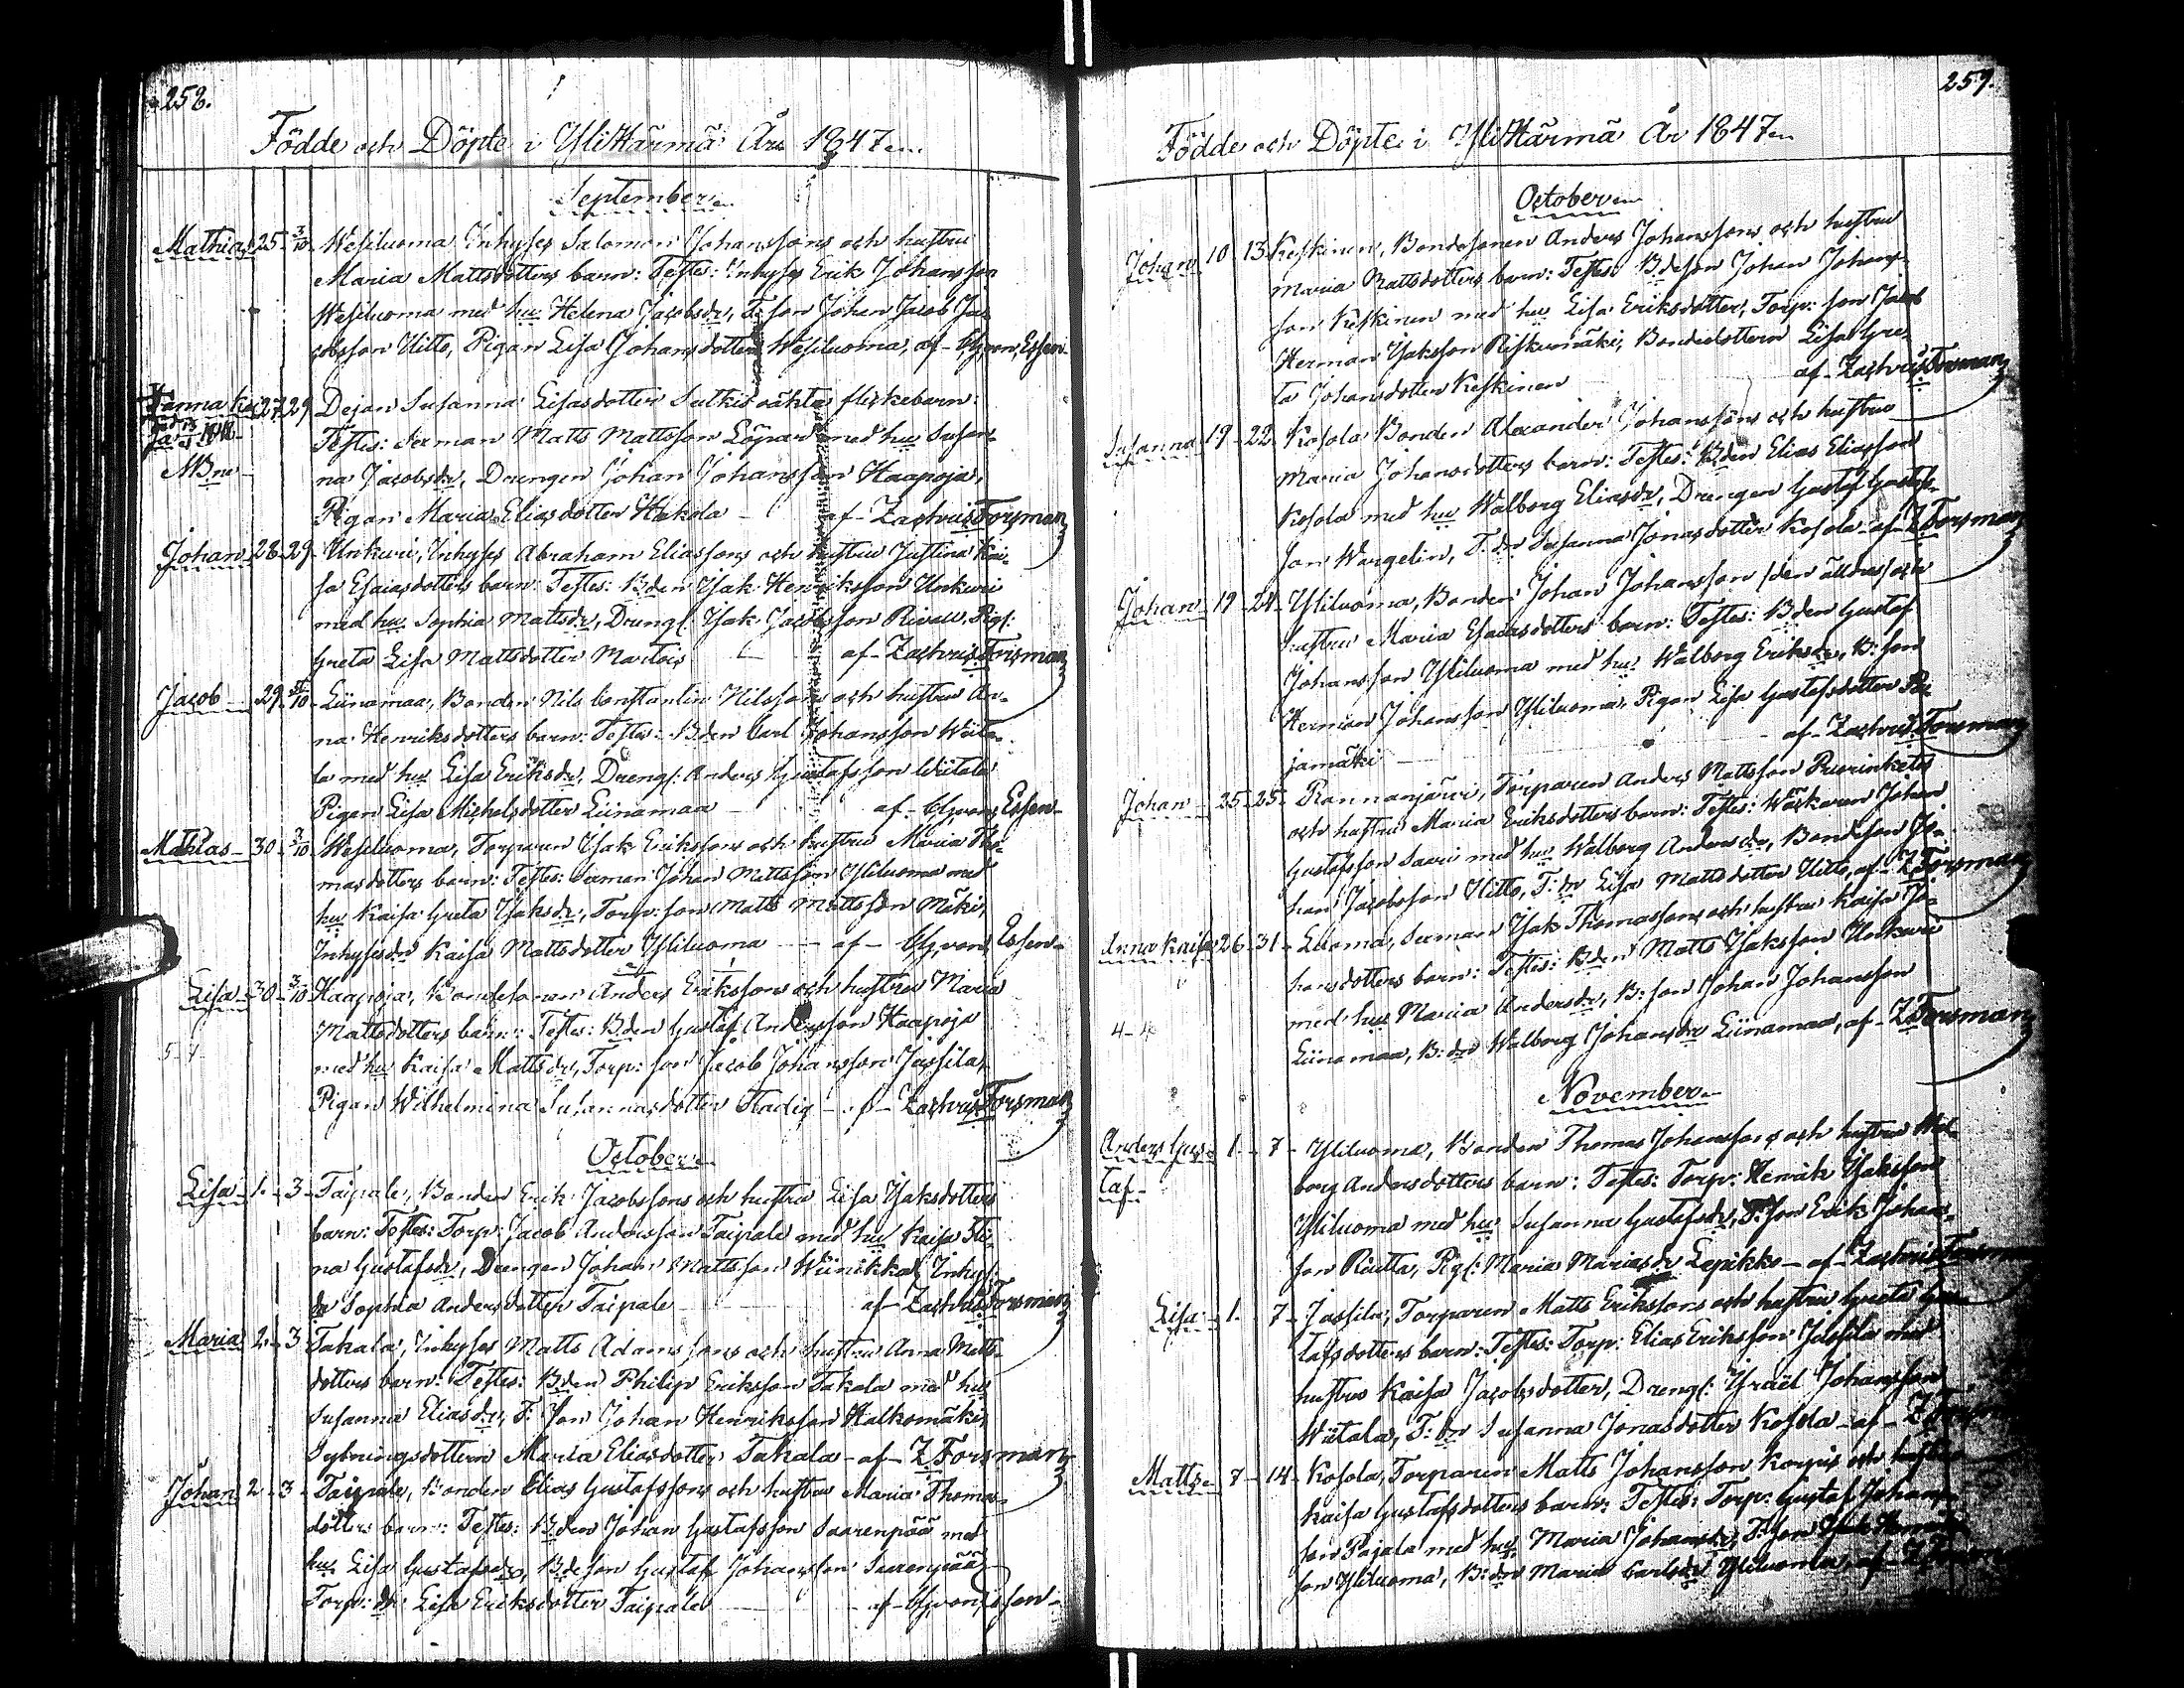 258.
Födde och Döpte i YliHärmä År 1847
September
Mathias 25 3/10 Wesiluoma Inhyses Salomon Johanssons och hustru
Maria Mattsdotters barn: Testes: Inhyses Erik Johansson
Wesiluoma med hu Helena Jacobsdr, T. son Johan Jacob Ja-
cobsson Uitto, Pigan Lisa Johansdotter Wesiluoma, af von Essen
27 29 Dejan Susanna Lisasdotter oäkta flickebarn:
Testes: Sexman Matts Mattsson Löpari med hu Susan-
na Jacobsdr, Drengen Johan Johansson Haapoja,
Pigan Maria Eliasdotter Hakola - af Zachris Forsman
Johan 28 29 Unkuri, Inhyses Abraham Eliassons och hustru Justina Kai-
sa Esaiasdotters barn: Testes: Bden Isak Henriksson Unkuri
med hu Sophia Mattsdr, Drengs: Isak Jacobsson Rivall, Pigs:
Greta Lisa Mattsdotter - af Zachris Forsman
Jacob 29 /10 Liinamaa, Bonden Nils Constantin Nilssons och hustru An-
na Henriksdotters barn: Testes: Bden Carl Johansson Wiita-
la med hu Lisa Eriksdr, Drengs: Anders Gustafsson Wiitala
Pigan Lisa Michelsdotter Liinamaa - af von Essen
Mathias 30 3/10 Wesiluoma, Torparen Isak Erikssons och hustru Maria Tho-
masdotters barn: Testes: Sexman Johan Mattsson Yliluoma med
hu Kaisa Greta Isaksdr, Torp: son Matts Mattsson Mäki,
Inhysesdr Kaisa Mattsdotter Yliluoma - af von Essen
Lisa 30 3/10 Haapoja, Bondesonen Anders Erikssons och hustru Maria
Mattsdotters barn: Testes: Bden Gustaf Andersson Haapoja
med hu Kaisa Mattsdr, Torp: son Jacob Johansson Jussila,
Pigan Wilhelmina Susannasdotter Stadig - af Zachris Forsman
October
Lisa 1. 3 Taipale, Bonden Erik Jacobssons och hustru Lisa Isaksdotters
barn: Testes: Torp: Jacob Andersson Taipale med hu Kaisa Sti-
na Gustafsdr, Drengen Johan Mattsson Wiinikka, Inhys:
dr Sophia Andersdotter Taipale - af Zachris Forsman
Maria 2. 3 Takala, Inhyses Matts Adamssons och hustru Anna Matts-
dotters barn: Testes: Bden Philip Eriksson Takala med hu
Susanna Eliasdr, T: son Johan Henriksson Kalkomäki,
Sytningsdottern Maria Eliasdotter Takala - af Z Forsman
Johan 2 3 Taipale, Bonden Elias Gustafssons och hustru Maria Thomas-
dotters barn: Testes: Bden Johan Gustafsson Saarenpää med
hu Lisa Gustafsdr, Bdeson Gustaf Johansson Saarenpää
Torp: dr Lisa Eriksdotter Taipale - af von Essen
259.
Födde och Döpte i YliHärmä År 1847
October
Johan 10 13 Keskinen, Bondesonen Anders Johanssons och hustru
Maria Mattsdotters barn: Testes: Bdeson Johan Johans-
son Keskinen med hu Lisa Eriksdotter, Torp: son Jacob
Herman Isaksson Ritkumäki, Bondedottern Lisa Gre-
ta Johansdotter Keskinen af Zachris Forsman
Susanna 19 22 Kosola Bonden Alexander Johanssons och hustru
Maria Johansdotters barn: Testes: Bden Elias Eliasson
Kosola med hu Walborg Eliasdr, Drengen Gustaf Gustafs-
son Wargelin, T: dr Susanna Jonasdotter Kosola af Z Forsman
Johan 19 24 Yliluoma, Bonden Johan Johansson (den äldres) och
hustru Maria Esaiasdotters barn: Testes: Bden Gustaf
Johansson Yliluoma med hu Walborg Eriksdr, B: son
Herman Johansson Yliluoma, Pigan Lisa Gustafsdotter
jamäki af Zachris Forsman
Johan 25 25 Rannanjärvi, Torparen Anders Mattsson
och hustru Maria Eriksdotters barn: Testes: Johan
Gustafsson Saari med hu Walborg Andersdr, Bondeson Jo-
han Jacobsson Uitto, T: dr Lisa Mattsdotter Uitto, af Z Forsman
Anna Kaisa 26 31 Luoma, Sexman Isak Thomassons och hustru Kaisa Jo-
hansdotters barn: Testes: Bden Matts Isaksson Unkuri
med hu Maria Andersdr, B: son Johan Johansson
Liinamaa, B: dr Walborg Johansdr Liinamaa, af Z Forsman
November
Anders Gus- 1. 7 Yliluoma, Bonden Thomas Johanssons och hustru Wal-
taf borg Andersdotters barn: Testes: Torp: Henrik Isaksson
Yliluoma med hu Susanna Gustafsdr, T: son Erik Johans-
son Riutta, Pigs: Maria Mariasdr Lepikko - af Zachris Forsman
Lisa 1. 7 Jussila, Torparen Matts Erikssons och hustru Greta Gus-
tafsdotters barn: Testes: Torp: Elias Eriksson Jussila med
hustru Kaisa Jacobsdotter, Drengs: Israël Johansson
Wiitala, T: dr Susanna Jonasdotter Kosola - af Z
Matts 7 14 Kosola, Torparen Matts Johansson Korpis och hustru
Kaisa Gustafsdotters barn: Testes: Torp: Gustaf Johans-
son Pajala med hu Maria Johansdr, T: son
son Yliluoma, B: dr Maria Carlsdr Yliluoma, af